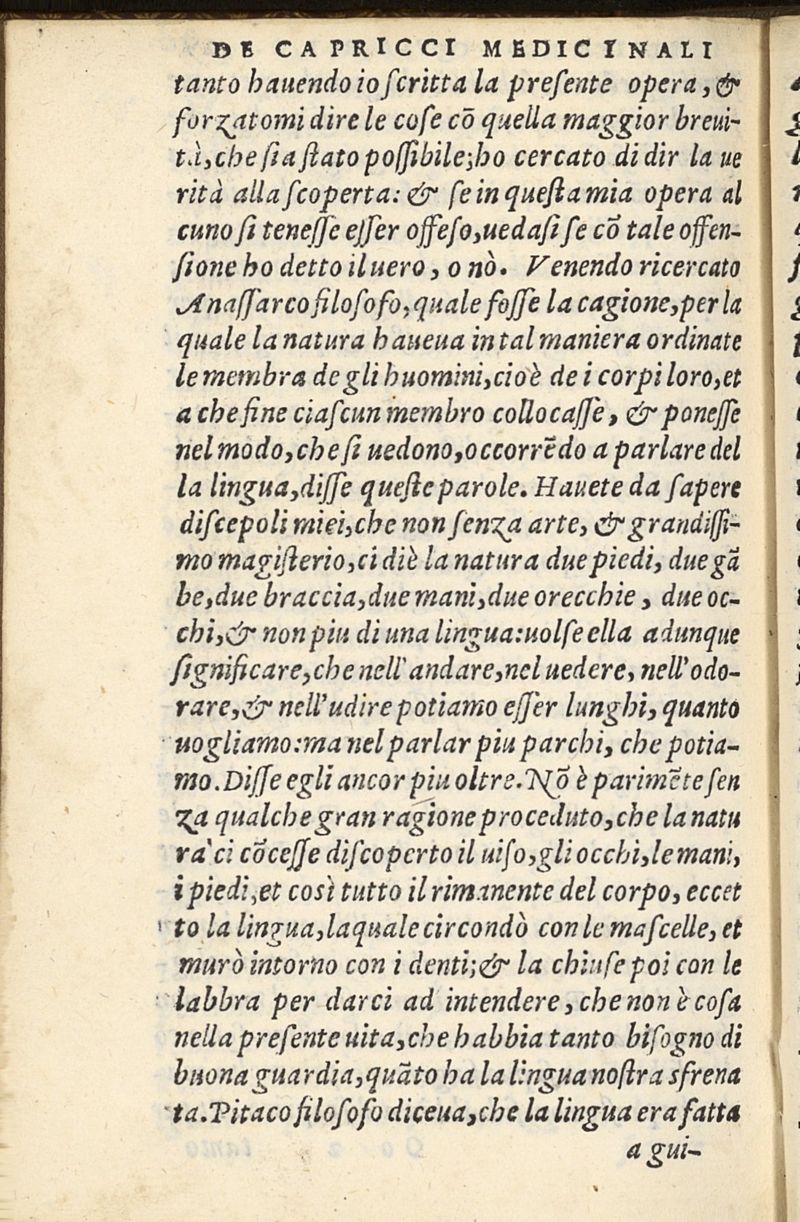 DE CAPRICCI MEDICINALI
tanto hauendo io ſcritta la preſente opera, &
forzatomi dire le coſe cõ quella maggior breui-
tà, che ſia ſtato poſſibile; ho cercato di dir la ue
rità alla ſcoperta: & ſe in queſta mia opera al
cuno ſi teneſſe eſſer offeſo, uedaſi ſe cõ tale offen-
ſione ho detto il uero, o nò. Venendo ricercato
Anaſſarco filoſofo, quale foſſe la cagione, per la
quale la natura haueua in tal maniera ordinate
le membra de gli huomini, cioè de i corpi loro, et
a che fine ciaſcun membro collocaſſe, & poneſſe
nel modo, che ſi uedono, occorrẽdo a parlare del
la lingua, diſſe queſte parole. Hauete da ſapere
diſcepoli miei, che non ſenza arte, & grandiſſi-
mo magiſterio, ci diè la natura due piedi, due gã
be, due braccia, due mani, due orecchie, due oc-
chi, & non piu di una lingua: uolſe ella adunque
ſignificare, che nell'andare, nel uedere, nell'odo-
rare, & nell'udire potiamo eſſer lunghi, quanto
uogliamo: ma nel parlar piu parchi, che potia-
mo. Diſſe egli ancor piu oltre. Nõ è parimẽte ſen
za qualche gran ragione proceduto, che la natu
ra ci cõceſſe diſcoperto il uiſo, gli occhi, le mani,
i piedi, et così tutto il rimanente del corpo, eccet
to la lingua, la quale circondò con le maſcelle, et
murò intorno con i denti; & la chiuſe poi con le
labbra per darci ad intendere, che non è coſa
nella preſente uita, che habbia tanto biſogno di
buona guardia, quãto ha la lingua noſtra sfrena
ta. Pitaco filoſofo diceua, che la lingua era fatta
a gui-